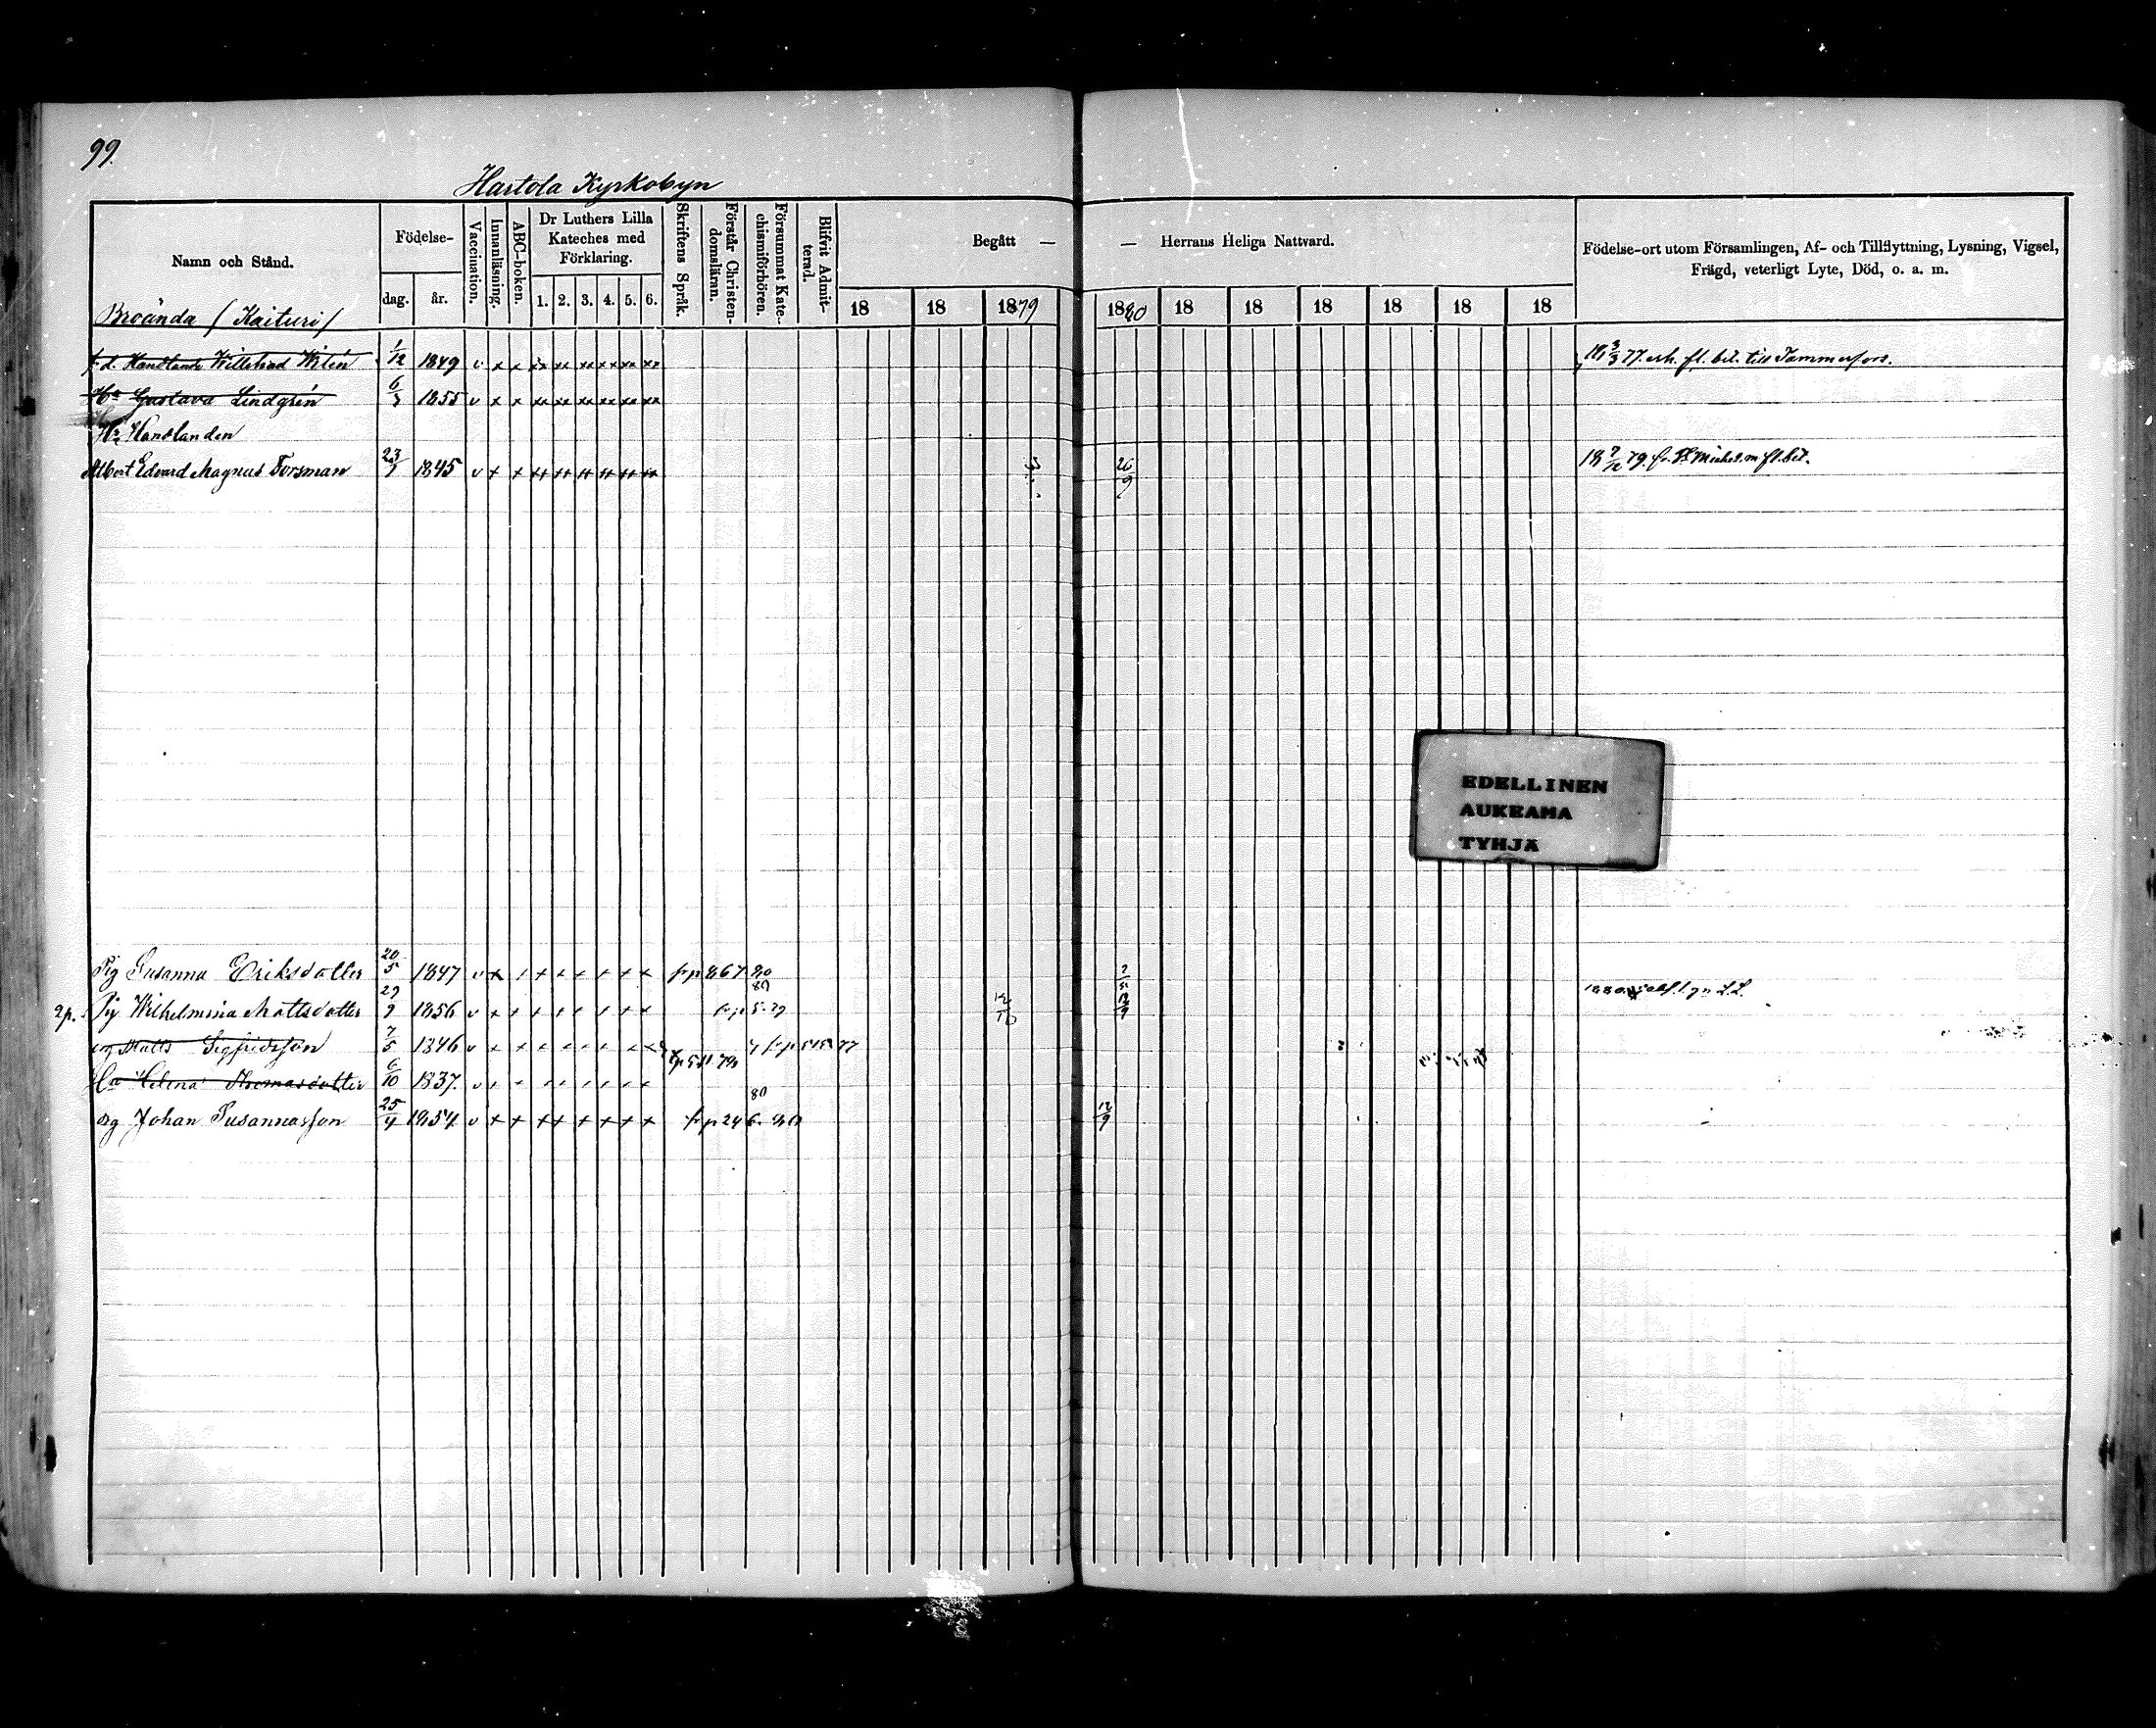 99.
Hartola Kyrkobyn
Namn och Stånd.
Födelse-
dag.
år.
Vaccination.
Innanläsning.
ABC-boken.
Dr Luthers Lilla
Kateches med
Förklaring.
1. 2. 3. 4. 5. 6.
Skriftens Språk.
Förstår Christen-
domsläran.
Försummat Kate-
chismiförhören.
Blifvit Admit-
terad.
Begått — — Herrans Heliga Nattvard.
18 18 1879 1880 18 18 18 18 18 18
Födelse-ort utom Församlingen, Af- och Tillflyttning, Lysning, Vigsel,
Frägd, veterligt Lyte, Död, o. a. m.
Broända / Kaituri /
f.d. Handlande Willehad Wilén 1/12 1849 v x x xx xx xx xx xx xx 18 3/3 77. erh. fl. bet. till Tammerfors.
Ha Gustava Lindgrén 6/3 1855 v x x xx xx xx xx xx xx
Handlanden
Albert Edvard Magnus Forsman 23/1 1845 v x x xx xx xx xx xx xx 26/9 79. fr. St Michel m fl. bet.
Pig Susanna Eriksdotter 20/5 1847 v x x x x x x x x
2p. Pig Wilhelmina Mattsdotter 29/9 1856 v x x x x x x x x 12/9
Matts Sigfridsson 7/5 1846 v x x x x x x x x
Ha Helena Thomasdotter 6/10 1837. v x x x x x x x x
Johan Susannasson 25/4 1854 v x x x x x x x x 80 12/9
EDELLINEN
AUKEAMA
TYHJÄ